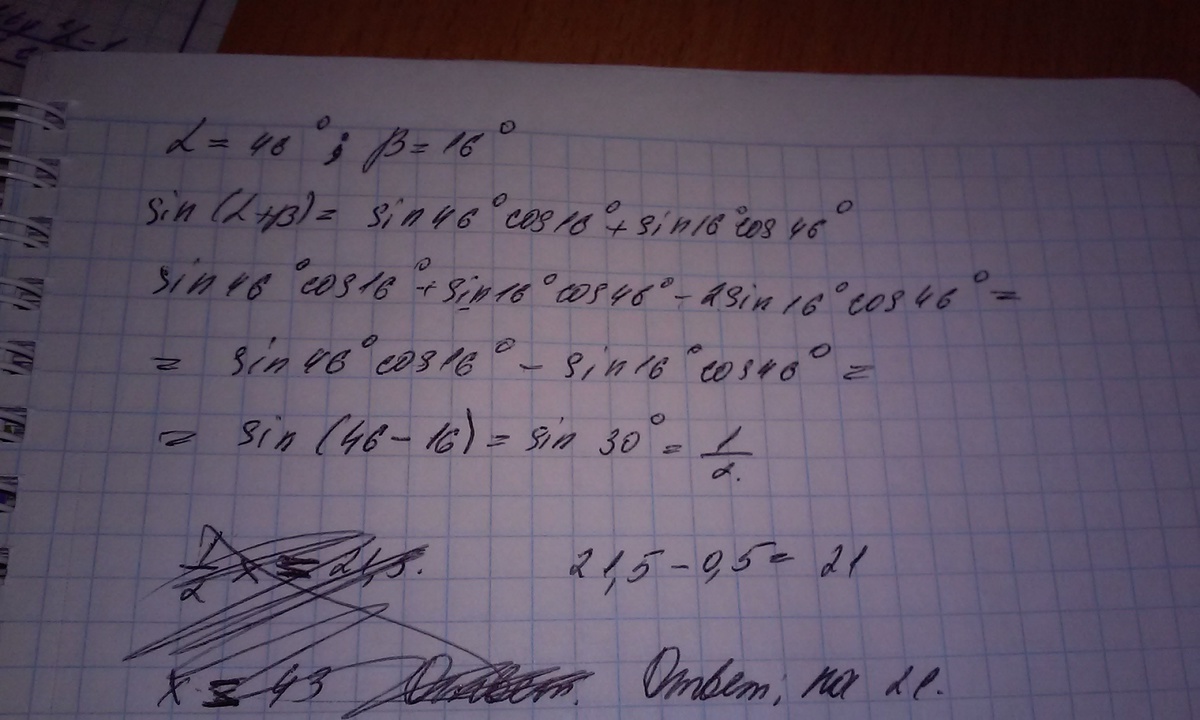 α = 46° ; β = 16°
sin (α+β) = sin 46° cos 16° + sin 16° cos 46°
sin 46° cos 16° + sin 16° cos 46° - 2 sin 16° cos 46° =
= sin 46° cos 16° - sin 16° cos 46° =
= sin (46 - 16) = sin 30° = 1/2.
1/2 x = 21,5. 21,5 - 0,5 = 21
x = 43 Ответ. Ответ; на 21.